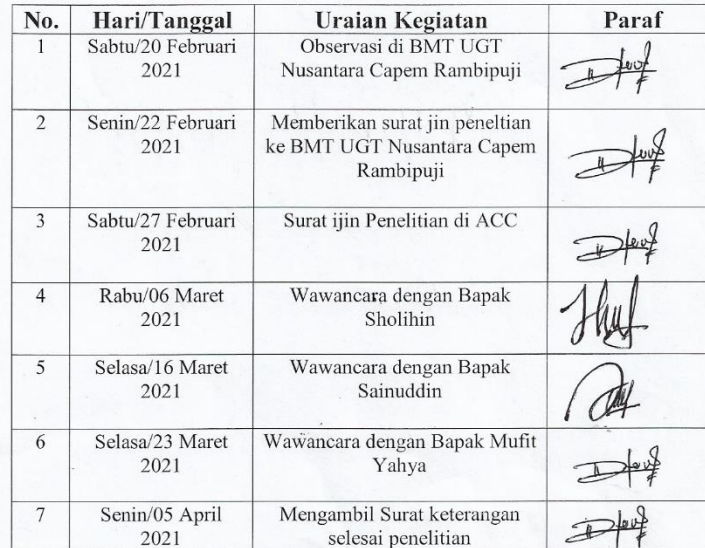 No. Hari/Tanggal Uraian Kegiatan Paraf
1 Sabtu/20 Februari Observasi di BMT UGT
2021 Nusantara Capem Rambipuji
2 Senin/22 Februari Memberikan surat jin peneltian
2021 ke BMT UGT Nusantara Capem
Rambipuji
3 Sabtu/27 Februari Surat ijin Penelitian di ACC
2021
4 Rabu/06 Maret Wawancara dengan Bapak
2021 Sholihin
5 Selasa/16 Maret Wawancara dengan Bapak
2021 Sainuddin
6 Selasa/23 Maret Wawancara dengan Bapak Mufit
2021 Yahya
7 Senin/05 April Mengambil Surat keterangan
2021 selesai penelitian